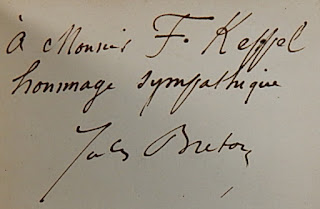 à Monsieur F. Keppel
hommage sympathique
Jules Breton